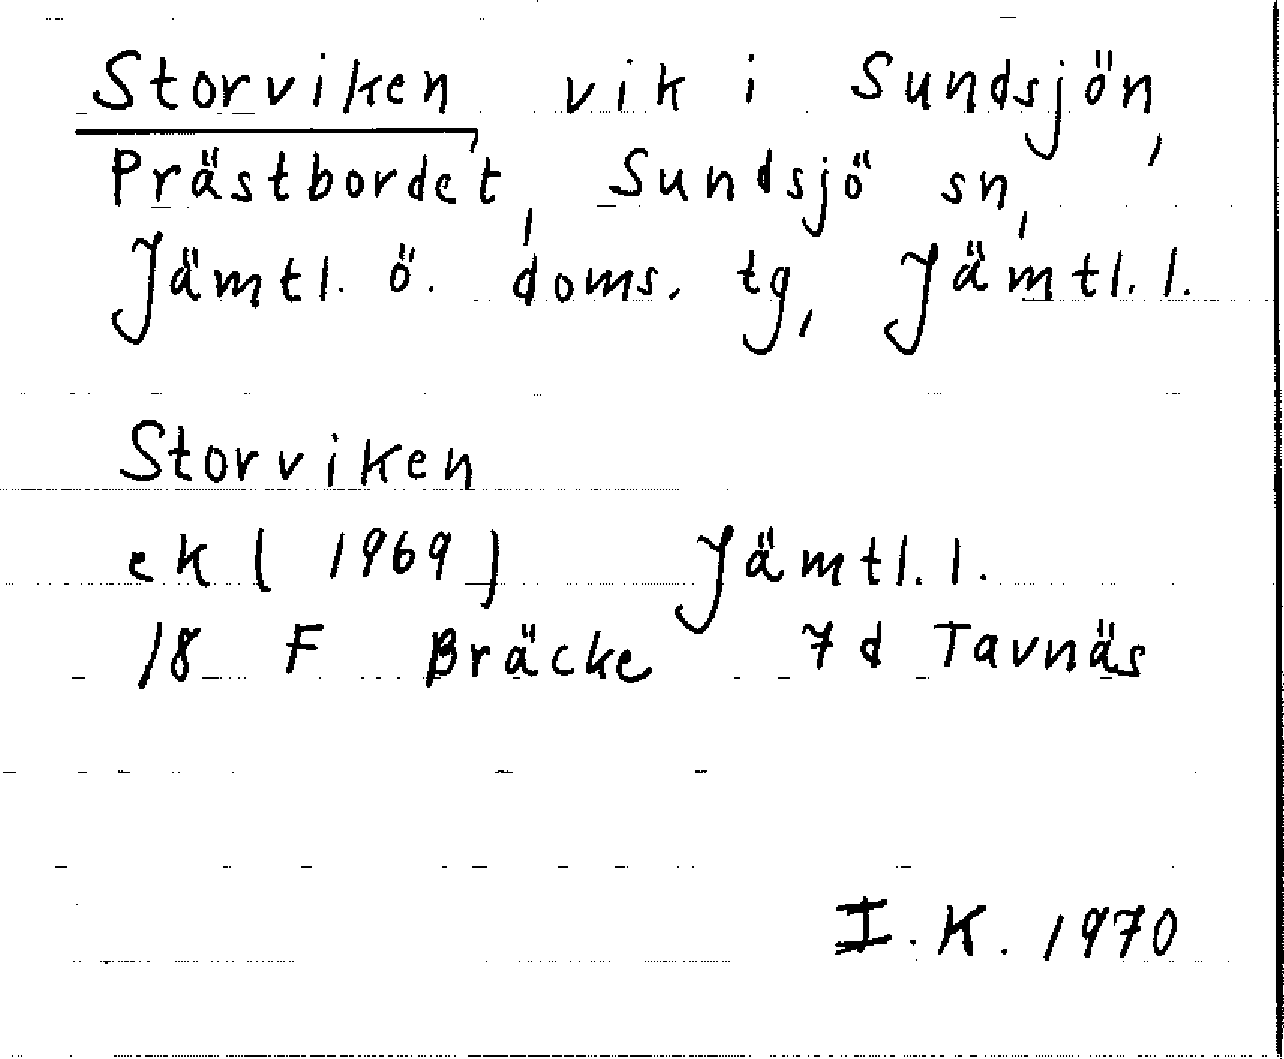 Storviken, vik i Sundsjön,
Prästbordet, Sundsjö sn,
Jämtl. ö. doms. tg, Jämtl. l.
Storviken
ek (1969) Jämtl. l.
18 F Bräcke 7 d Tavnäs
I. K. 1970